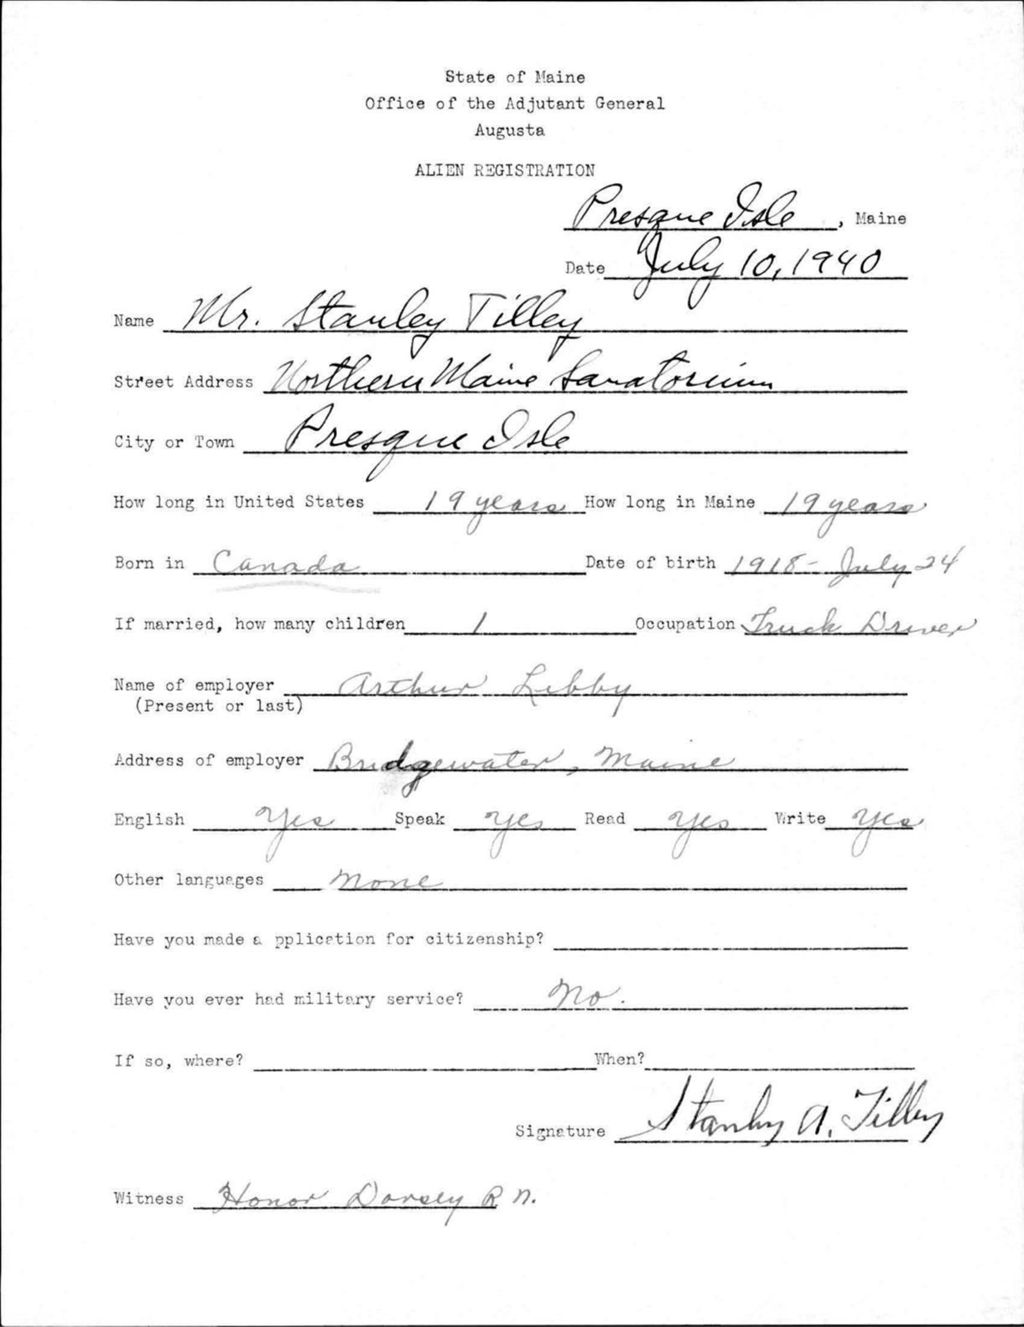 State of Maine
Office of the Adjutant General
Augusta
ALIEN REGISTRATION
Presque Isle, Maine
Date July 10, 1940
Name Mr. Stanley Tilley
Street Address Northern Maine Sanatorium
City or Town Presque Isle
How long in United States 19 years How long in Maine 19 years
Born in Canada Date of birth 1918 - July 24
If married, how many children 1 Occupation Truck Driver
Name of employer Arthur Libby
(Present or last)
Address of employer Bridgewater, Maine
English Yes Speak yes Read yes Write yes
Other languages None
Have you made a pplication for citizenship?
Have you ever had military service? No.
If so, where? When?
Signature Stanley A. Tilley
Witness Honor Dorsey R.N.